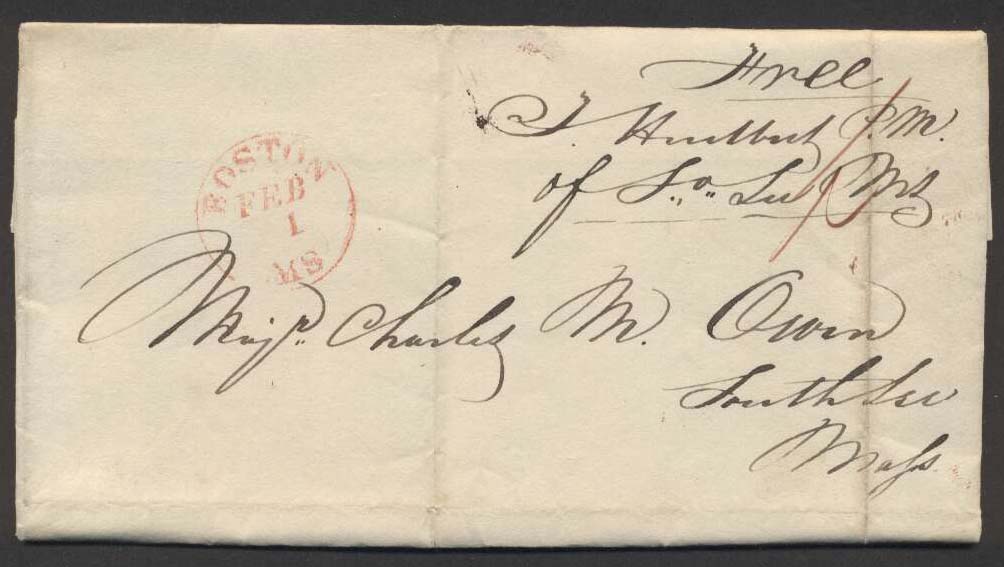 Free
T. Hurlbut P.M.
of So. Lee Ms
BOSTON
FEB
1
MS
Majr. Charles M. Owen
South Lee
Mass.